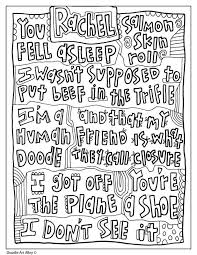 You RACHEL SALMON
FELL ASLEEP SKIN ROLL
I WASN'T SUPPOSED TO
PUT BEEF IN THE TRIFLE
I'M A and that my
HUMAN FRIEND is what
DOODE they call CLOSURE
I GOT OFF YOU'RE
THE PLANE A SHOE
I DON'T SEE IT
Doodle Art Alley ©